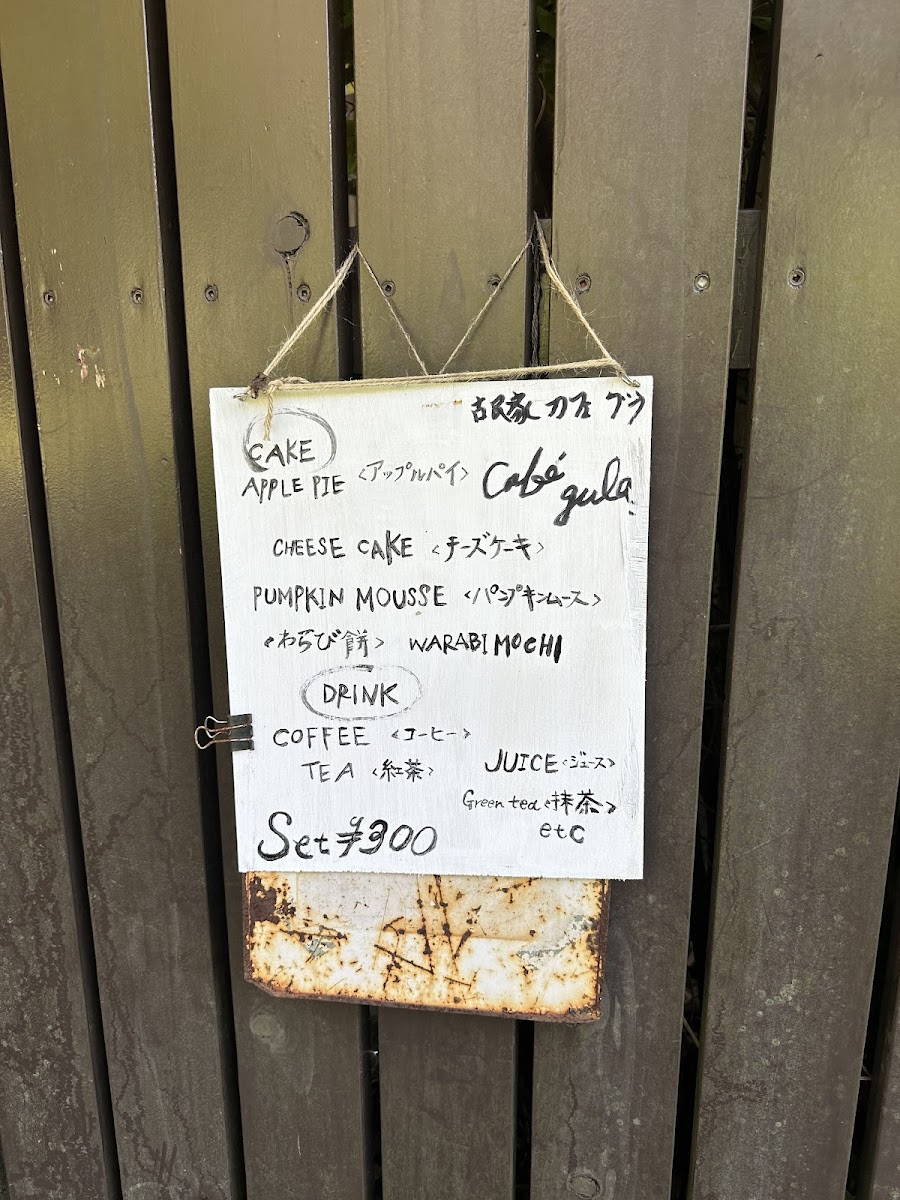 古民家カフェ グラ
CAKE
APPLE PIE <アップルパイ>
Café gula
CHEESE CAKE <チーズケーキ>
PUMPKIN MOUSSE <パンプキンムース>
<わらび餅> WARABI MOCHI
DRINK
COFFEE <コーヒー>
TEA <紅茶>
JUICE <ジュース>
Green tea <抹茶>
etc
Set ¥300